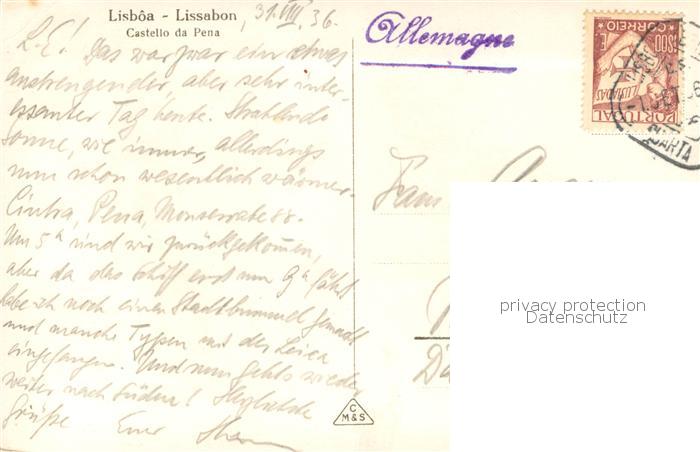 Lisbôa - Lissabon
Castello da Pena
31.VIII.36.
L.E.! Das war zwar ein etwas
anstrengender, aber sehr inter-
essanter Tag heute. Strahlende
Sonne, wie immer, allerdings
nun schon wesentlich wärmer.
Cintra, Pena, Monserrate
Um 5h sind wir zurückgekommen,
aber da das Schiff erst um 9h fährt
habe ich noch einen Stadtbummel gemacht
und manche Typen mit der Leica
eingefangen. Und nun gehts wieder
weiter nach Süden! Herzlichste
Grüße Euer
Allemagne
1$00 E.
CORREIO
LUSIADAS
PORTUGAL
1.SET.36
QUARTA
Frau
privacy protection
Datenschutz
C
M&S